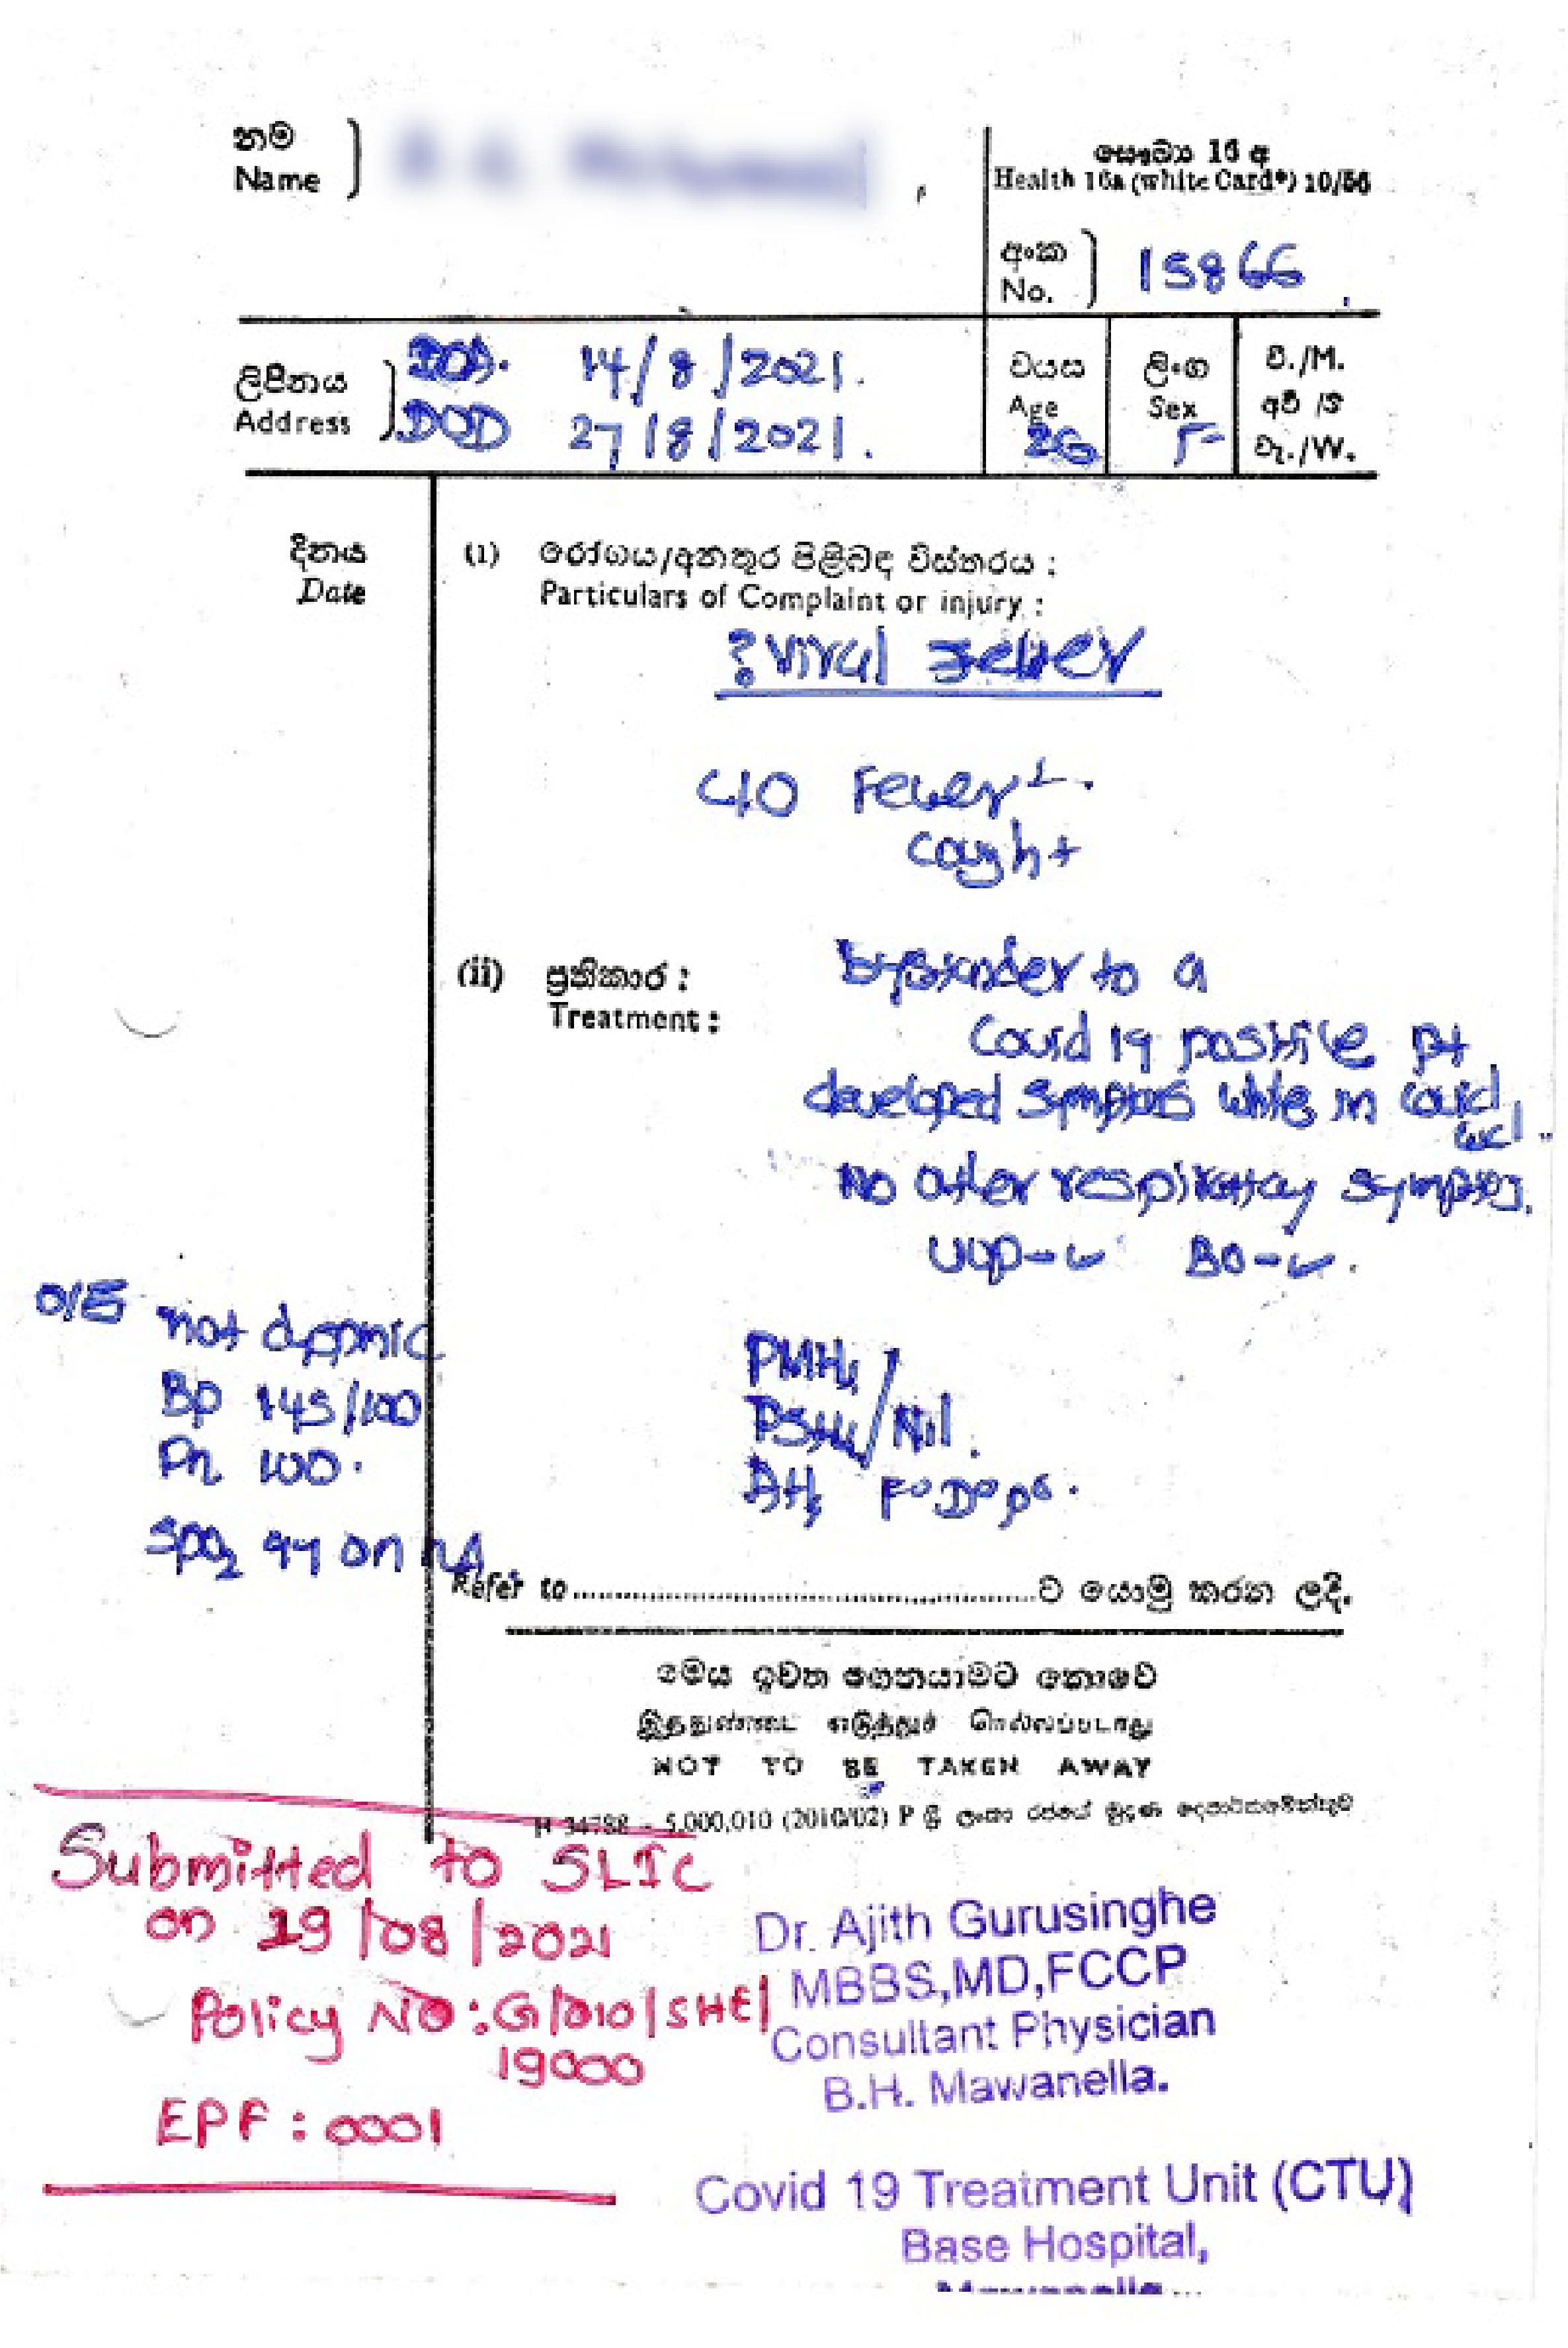 නම
Name
සෞඛ්‍ය 16 අ
Health 16a (white Card*) 10/56
අංක
No. 15866
ලිපිනය
Address
DOA. 14/8/2021.
DOD 27/8/2021.
වයස
Age
26
ලිංග
Sex
F
වි./M.
අවි /S
වැ./W.
දිනය
Date
(i) රෝගය/අනතුර පිළිබඳ විස්තරය :
Particulars of Complaint or injury :
? Viral Fever
C/O Fever +.
Cough +
(ii) ප්‍රතිකාර :
Treatment :
bystander to a
Covid 19 positive pt
developed symptoms while in Covid
No other respiratory symptoms.
UOP - ✓ BO - ✓.
O/E not dyspnic
BP 145/100
PR 100.
SpO₂ 99 on RA
PMH,
PSH, / Nil.
AH,
Refer to ........................................ට යොමු කරන ලදි.
මෙය ඉවත ගෙනයාමට නොවේ
இத்துண்டை எடுத்துச் செல்லப்படாது
NOT TO BE TAKEN AWAY
H 34788 - 5,000,010 (2010/02) P ශ්‍රී ලංකා රජයේ මුද්‍රණ දෙපාර්තමේන්තුව
Submitted to SLIC
on 29/08/2021
Policy NO : G/010/SHE/
19000
EPF : 0001
Dr. Ajith Gurusinghe
MBBS,MD,FCCP
Consultant Physician
B.H. Mawanella.
Covid 19 Treatment Unit (CTU)
Base Hospital,